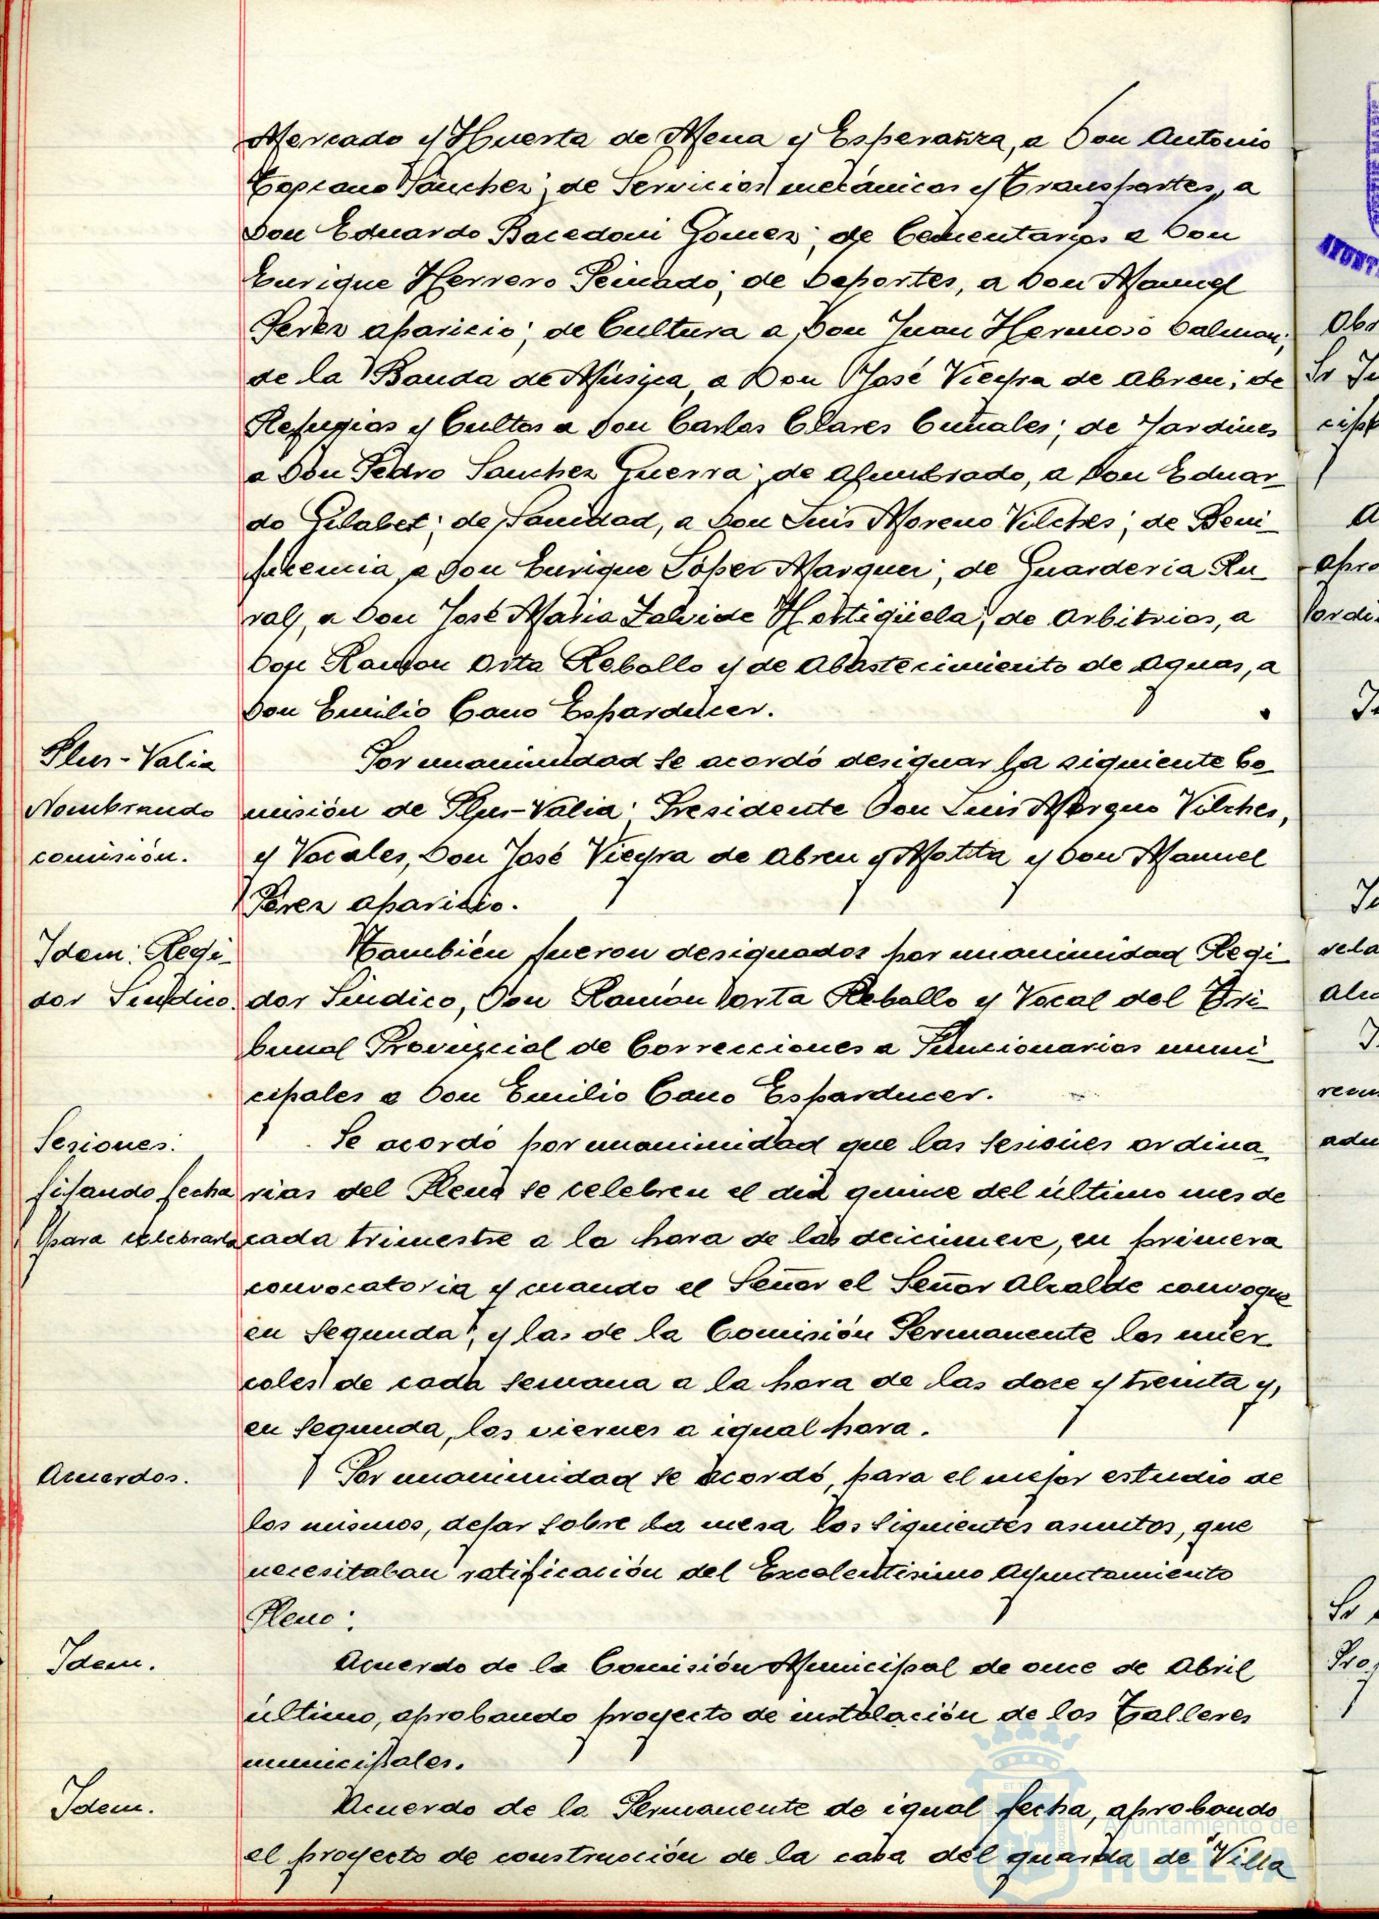 Mercado y Huerta de Mena y Esperanza, a Don Antonio
Toscano Sánchez; de Servicios mecánicos y Transportes, a
Don Eduardo Bacedoni Gómez; de Cementarios a Don
Enrique Herrero Peinado; de Deportes, a Don Manuel
Perez Aparicio; de Cultura a Don Juan Hermoso Dalmau;
de la Banda de Música, a Don José Vieyra de Abreu; de
Refugios y Cultos a Don Carlos Clares Cuñales; de Jardines
a Don Pedro Sanchez Guerra; de Alumbrado, a Don Eduar-
do Gilabet; de Sanidad, a Don Luis Moreno Vilches; de Beni-
ficencia a Don Enrique López Marquez; de Guarderia Ru-
ral, a Don José Maria Zalvide Hortigüela; de Arbitrios, a
Don Ramon Orta Rebollo y de Abastecimiento de Aguas, a
Don Emilio Cano Esparducer.
Plus-Valia
Nombrando
comisión.
Por unanimidad se acordó designar la siguiente Co-
misión de Plus-Valia: Presidente Don Luis Moreno Vilches,
y Vocales, Don José Vieyra de Abreu y Motta y Don Manuel
Pérez Aparicio.
Idem: Regi-
dor Síndico.
También fueron designados por unanimidad Regi-
dor Síndico, Don Ramón Orta Rebollo y Vocal del Tri-
bunal Provincial de Correcciones a Funcionarios muni-
cipales a Don Emilio Cano Esparducer.
Sesiones:
fijando fecha
para celebrarla
Se acordó por unanimidad que las sesiones ordina-
rias del Pleno se celebren el día quince del último mes de
cada trimestre a la hora de las deicinueve, en primera
convocatoria y cuando el Señor el Señor Alcalde convoque
en segunda; y las de la Comisión Permanente los miér-
coles de cada semana a la hora de las doce y treinta y,
en segunda, los viernes a igual hora.
Acuerdos.
Por unanimidad se acordó, para el mejor estudio de
los mismos, dejar sobre la mesa los siguientes asuntos, que
necesitaban ratificación del Excelentisimo Ayuntamiento
Pleno:
Idem.
Acuerdo de la Comisión Municipal de once de Abril
último, aprobando proyecto de instalación de los Talleres
municipales.
Idem.
Acuerdo de la Permanente de igual fecha, aprobando
el proyecto de construcción de la casa del guarda de "Villa
Ayuntamiento de
HUELVA